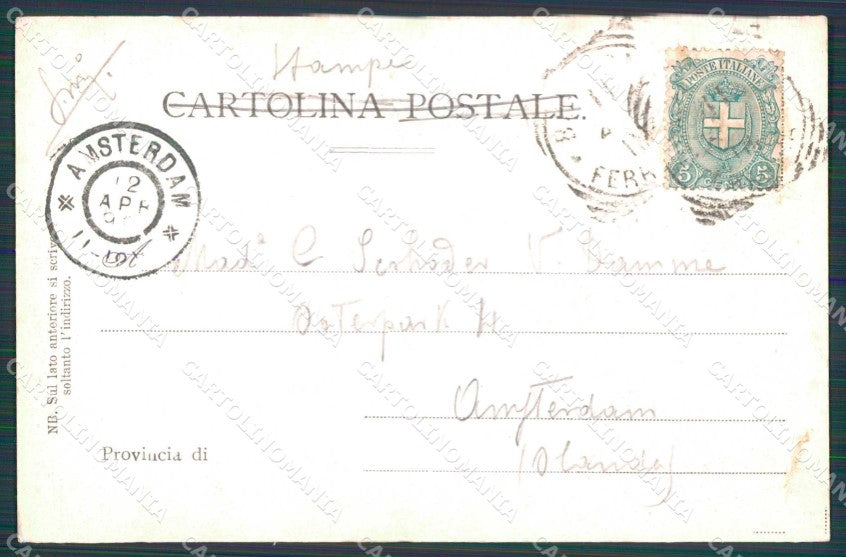 Stampe
CARTOLINA POSTALE.
POSTE ITALIANE
5 5
FERR
AMSTERDAM
12
APR
Mad. C Schöder V. Damme
Oosterpark 14
Amsterdam
(Olanda)
Provincia di
NB. Sul lato anteriore si scrive
soltanto l'indirizzo.
CARTOLINOMANIA